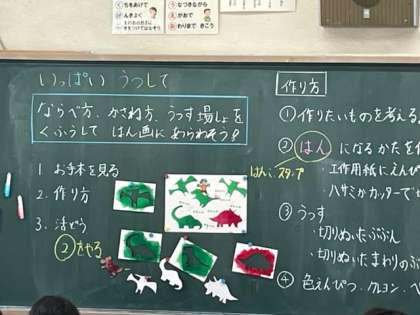 くちをあけて
げんきよく
つなぎながら
かおで
おわりまで きこう
いっぱい うつして
ならべ方、かさね方、うつす場しょを
くふうして はん画に あらわそう
1 お手本を見る
2. 作り方
3. 活どう
②をやる
作り方
①作りたいものを考える。
② はん になるかたを作
はんこ、スタンプ
・工作用紙にえんぴ
・ハサミかカッターで切
③ うつす
・切りぬいたぶぶん
・切りぬいたまわりのぶ
④ 色えんぴつ、クレヨン、ペ